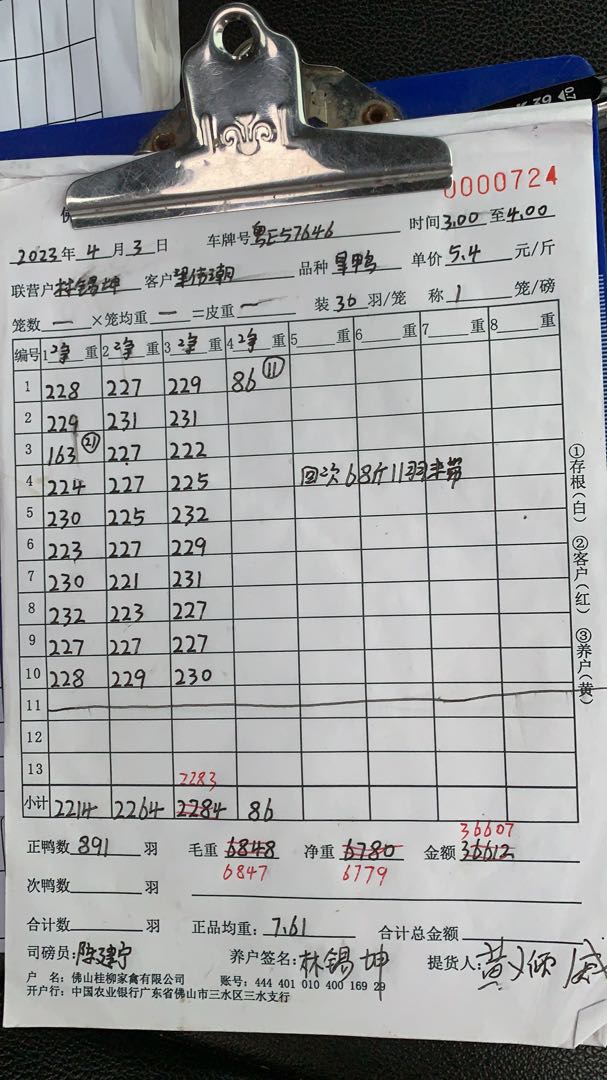 0000724
2023年 4月 3日 车牌号 粤E57646 时间 3.00 至 4.00
联营户 林锡坤 客户 品种 单价 5.4 元/斤
笼数 一 ×笼均重 一 =皮重 一 装 30 羽/笼 称 1 笼/磅
编号 1 净 重 2 净 重 3 净 重 4 净 重 5 重 6 重 7 重 8 重
1 228 227 229 86 ⑪
2 229 231 231
3 163 ㉑ 227 222
4 224 227 225 回次68斤11羽未算
5 230 225 232
6 223 227 229
7 230 221 231
8 232 223 227
9 227 227 227
10 228 229 230
11
12
13
2283
小计 2214 2264 2284 86
36607
正鸭数 891 羽 毛重 6848 净重 6780 金额 36612
6847 6779
次鸭数 羽
合计数 羽 正品均重: 7.61 合计总金额
司磅员: 陈建宁 养户签名: 林锡坤 提货人:
户 名: 佛山桂柳家禽有限公司 账号: 444 401 010 400 169 29
开户行: 中国农业银行广东省佛山市三水区三水支行
①存根(白) ②客户(红) ③养户(黄)